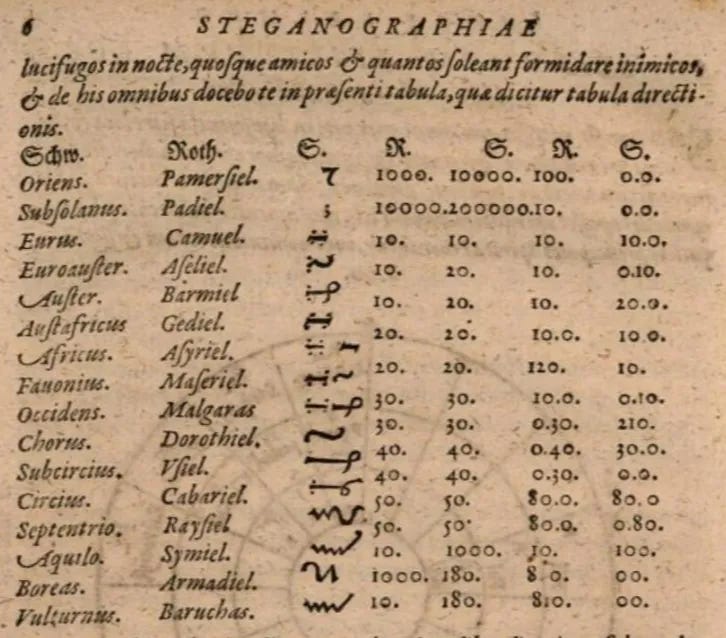 6 STEGANOGRAPHIAE
lucifugos in nocte, quosque amicos & quantos soleant formidare inimicos,
& de his omnibus docebo te in præsenti tabula, quæ dicitur tabula directi-
onis.
Schw. Roth. S. R. S. R. S.
Oriens. Pamersiel. 1000. 10000. 100. 0.0.
Subsolanus. Padiel. 10000. 200000. 10. 0.0.
Eurus. Camuel. 10. 10. 10. 10.0.
Euroauster. Aseliel. 10. 20. 10. 0.10.
Auster. Barmiel 10. 20. 10. 20.0.
Austafricus Gediel. 20. 20. 10.0. 10 0.
Africus. Asyriel. 20. 20. 120. 10.
Fauonius. Maseriel. 30. 30. 10.0. 0.10.
Occidens. Malgaras 30. 30. 0.30. 210.
Chorus. Dorothiel. 40. 40. 0.40. 30.0.
Subcircius. Vsiel. 40. 40. 0.30. 0.0.
Circius. Cabariel. 50. 50. 80.0. 80.0
Septentrio. Raysiel 50. 50. 80.0. 0.80.
Aquilo. Symiel. 10. 1000. 10. 100.
Boreas. Armadiel. 1000. 180. 8 0. 00.
Vulturnus. Baruchas. 10. 180. 810. 00.